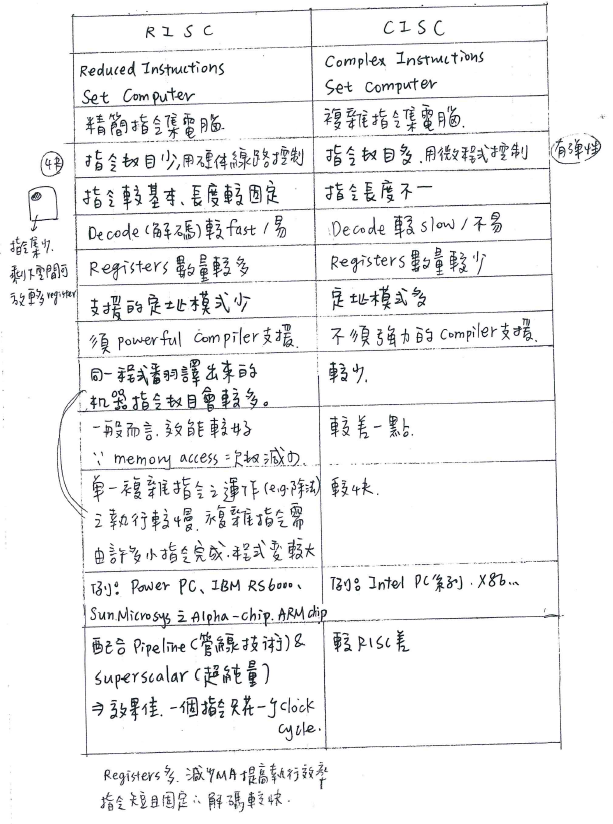 RISC
CISC
Reduced Instructions
Set Computer
Complex Instructions
Set Computer
精簡指令集電腦
複雜指令集電腦.
快
指令數目少,用硬体線路控制
指令數目多.用微程式控制
有彈性
指令較基本、長度較固定
指令長度不一
Decode(解碼)較fast/易
Decode 較 slow/不易
指令集少.
剩下空間可
放較多register
Registers 數量較多
Registers 數量較少
支援的定址模式少
定址模式多
須 powerful Compiler支援.
不須強力的Compiler支援.
同一程式翻譯出來的
机器指令数目會較多。
較少.
一般而言.效能較好
∵ memory access 次数減少.
較差一點.
单一複雜指令之運作(e.g.除法)
之執行較慢.複雜指令需
由許多小指令完成.程式變較大
較快.
例: Power PC、IBM RS6000、
Sun.Microsys 之 Alpha-chip.ARM chip
例: Intel PC系列.X86...
配合 Pipeline(管線技術)&
superscalar(超純量)
⇒效果佳.一個指令只花一个clock
cycle.
較RISC差
Registers多.減少MA提高執行效率
指令短且固定∴解碼較快.